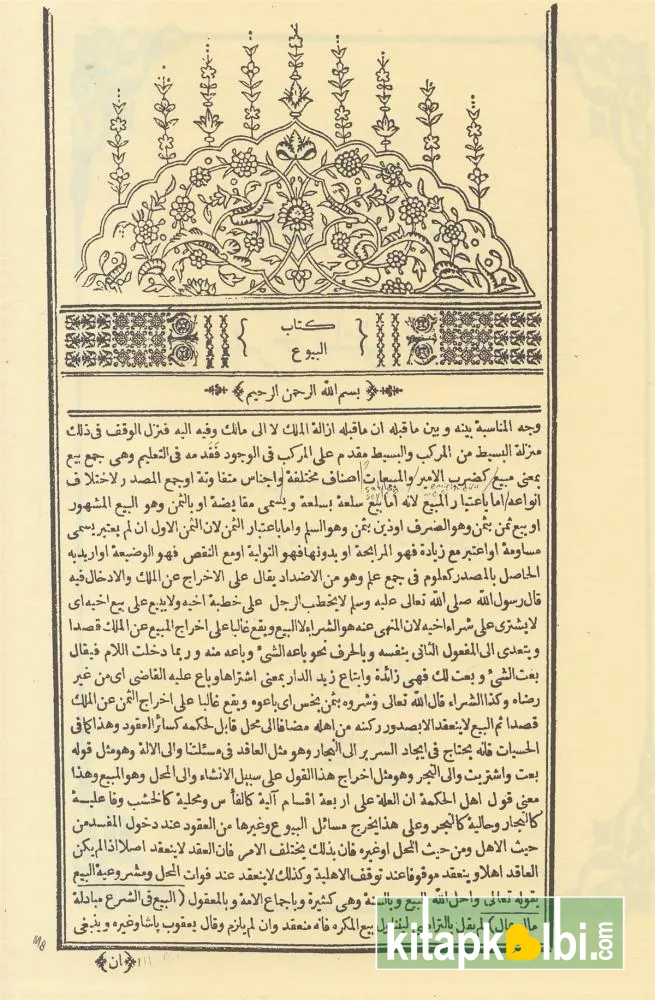 كتاب
البيوع
بسم الله الرحمن الرحيم
وجه المناسبة بينه وبين ماقبله ان ماقبله ازالة الملك لا الى مالك وفيه اليه فنزل الوقف فى ذلك
منزلة البسيط من المركب والبسيط مقدم على المركب فى الوجود فقدمه فى التعليم وهى جمع بيع
بمعنى مبيع كضرب الامير والمبيعات اصناف مختلفة واجناس متفاوتة اوجمع المصدر لاختلاف
انواعه اما باعتبار المبيع لانه اما بيع سلعة بسلعة ويسمى مقايضة او بالثمن وهو البيع المشهور
او بيع ثمن بثمن وهو الصرف اودين بثمن وهو السلم واما باعتبار الثمن لان الثمن الاول ان لم يعتبر يسمى
مساومة او اعتبر مع زيادة فهو المرابحة او بدونها فهو التولية اومع النقص فهو الوضيعة او اريد به
الحاصل بالمصدر كعلوم فى جمع علم وهو من الاضداد يقال على الاخراج عن الملك والادخال فيه
قال رسول الله صلى الله تعالى عليه وسلم لا يخطب الرجل على خطبة اخيه ولا يبيع على بيع اخيه اى
لا يشترى على شراء اخيه لان المنهى عنه هو الشراء لا البيع ويقع غالبا على اخراج المبيع عن الملك قصدا
ويتعدى الى المفعول الثانى بنفسه وبالحرف نحو باعه الشئ وباعه منه وربما دخلت اللام فيقال
بعت الشئ وبعت لك فهى زائدة وابتاع زيد الدار بمعنى اشتراها وباع عليه القاضى اى من غير
رضاه وكذا الشراء قال الله تعالى وشروه بثمن بخس اى باعوه ويقع غالبا على اخراج الثمن عن الملك
قصدا ثم البيع لا ينعقد الا بصدور ركنه من اهله مضافا الى محل قابل لحكمه كسائر العقود وهذا كما فى
الحسيات فانه يحتاج فى ايجاد السرير الى النجار وهو مثل العاقد فى مسئلتنا والى الالة وهو مثل قوله
بعت واشتريت والى النجر وهو مثل اخراج هذا القول على سبيل الانشاء والى المحل وهو المبيع وهذا
معنى قول اهل الحكمة ان العلة على اربعة اقسام آلية كالفأس ومحلية كالخشب وفاعلية
كالنجار وحالية كالنجر وعلى هذا يخرج مسائل البيوع وغيرها من العقود عند دخول المفسد من
حيث الاهل ومن حيث المحل اوغيره فان بذلك يختلف الامر فان العقد لا ينعقد اصلا اذا لم يكن
العاقد اهلا وينعقد موقوفا عند توقف الاهلية وكذلك لا ينعقد عند فوات المحل ومشروعية البيع
بقوله تعالى واحل الله البيع وبالسنة وهى كثيرة وباجماع الامة وبالمعقول (البيع فى الشرع مبادلة
مال بمال) لم يقل بالتراضى ليتناول بيع المكره فانه منعقد وان لم يلزم وقال يعقوب پاشا وغيره وينبغى
ان
kitapkalbi.com